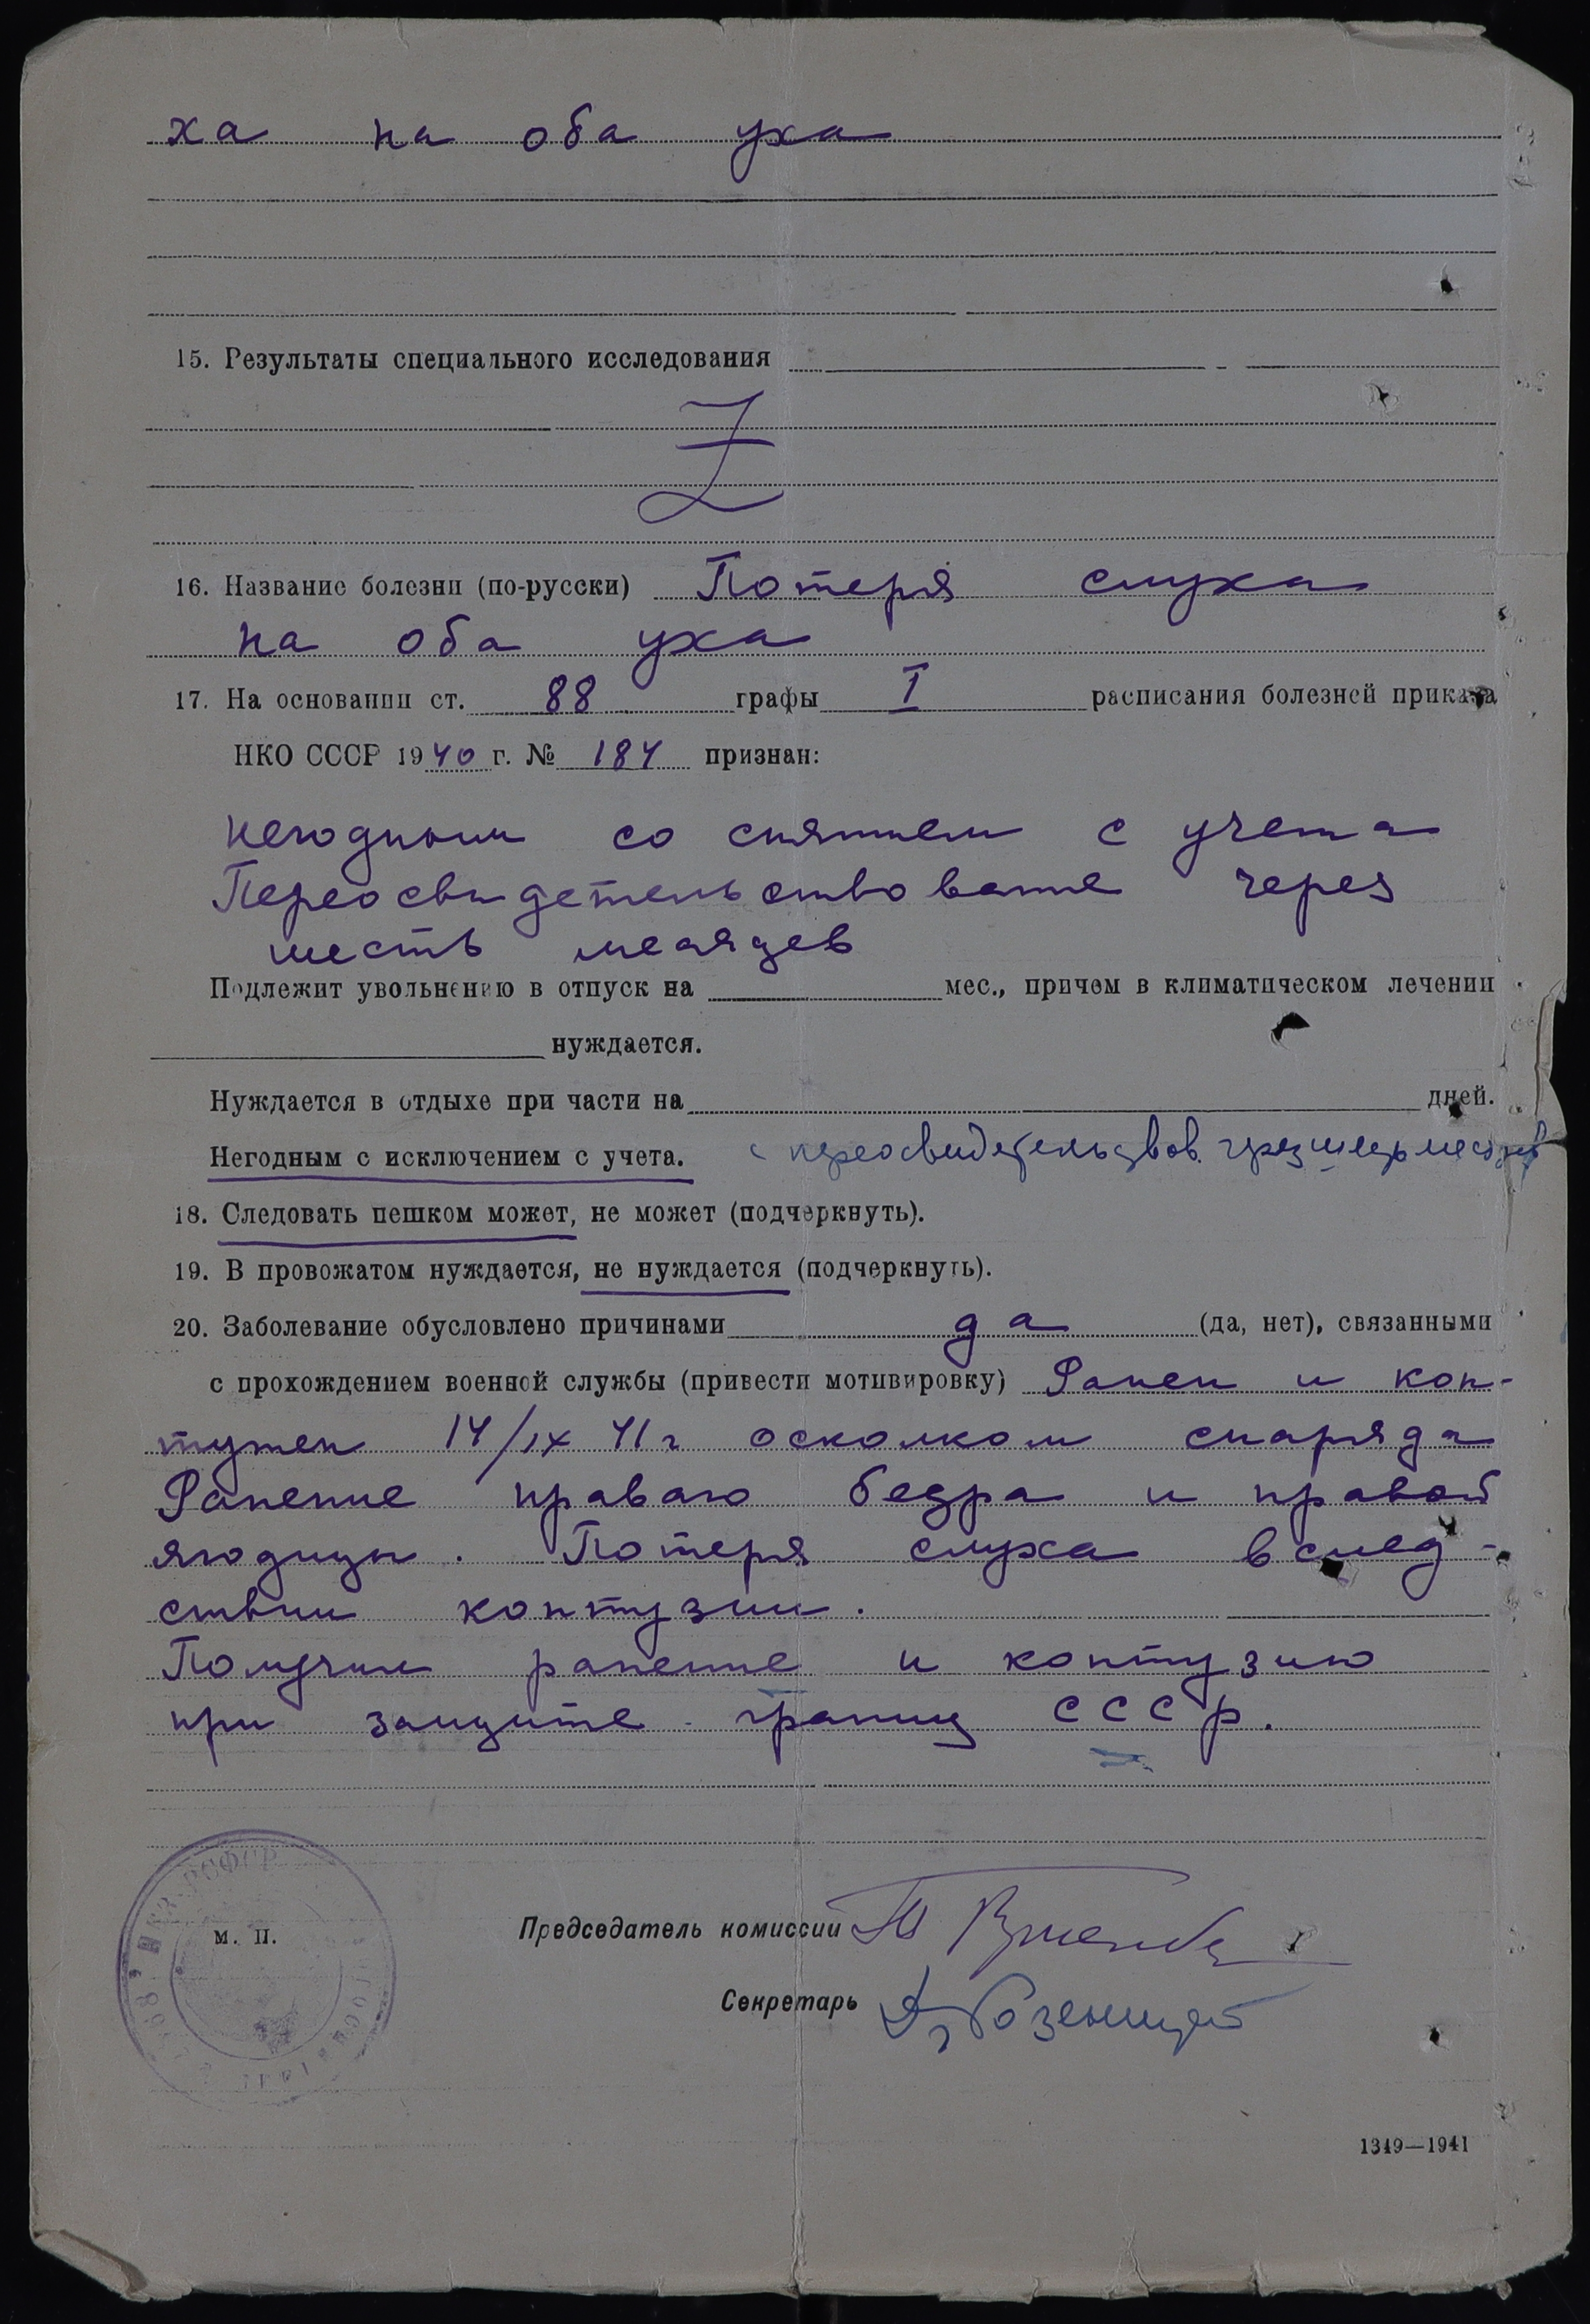 ха на оба уха
15. Результаты специального исследования
Z
16. Название болезни (по-русски) Потеря слуха
на оба уха
17. На основании ст. 88 графы I расписания болезней приказа
НКО СССР 1940 г. № 184 признан:
негодным со снятием с учета
Переосвидетельствование через
шесть месяцев
Подлежит увольнению в отпуск на мес., причем в климатическом лечении
нуждается.
Нуждается в отдыхе при части на дней.
Негодным с исключением с учета. с переосвидетельствов. через шесть месяцев
18. Следовать пешком может, не может (подчеркнуть).
19. В провожатом нуждается, не нуждается (подчеркнуть).
20. Заболевание обусловлено причинами да (да, нет), связанными
с прохождением военной службы (привести мотивировку) Ранен и кон-
тужен 14/IX 41 г осколком снаряда
Ранение правого бедра и правой
ягодицы. Потеря слуха вслед-
ствии контузии.
Получил ранение и контузию
при защите границ СССР.
НКЗ РСФСР
м. п.
Председатель комиссии
Секретарь
1349—1941